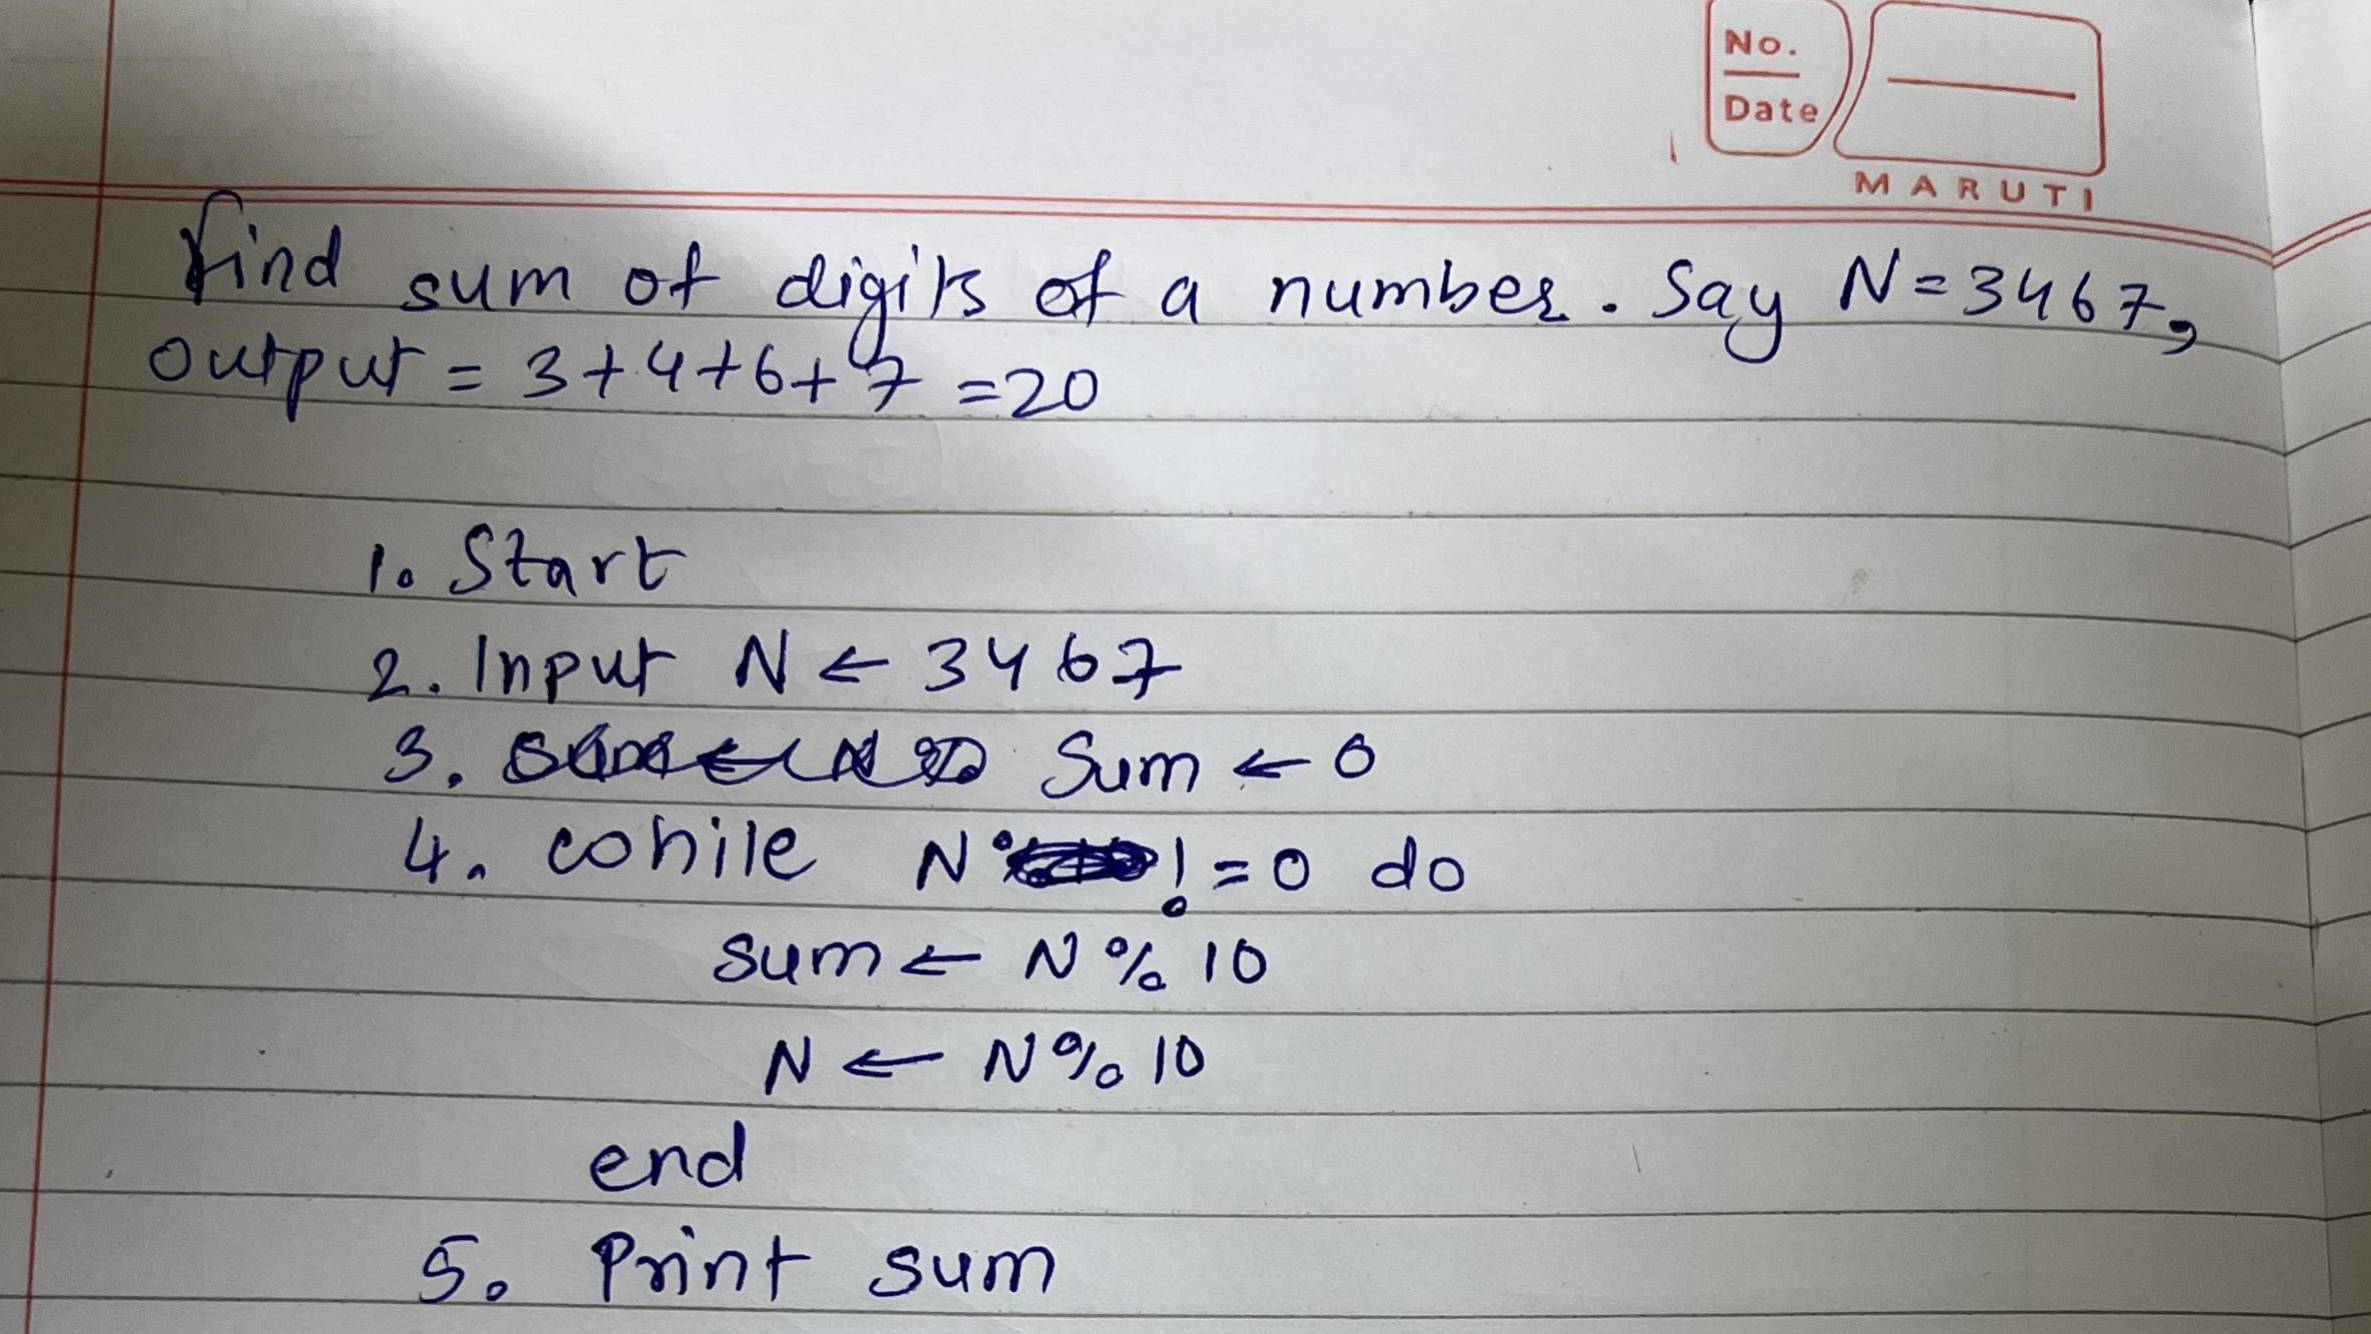 No.
Date
MARUTI
Find sum of digits of a number. Say N=3467,
output = 3+4+6+7 =20
1. Start
2. Input N ← 3467
3. Sum ← 0
4. while N != 0 do
sum ← N % 10
N ← N % 10
end
5. Print sum